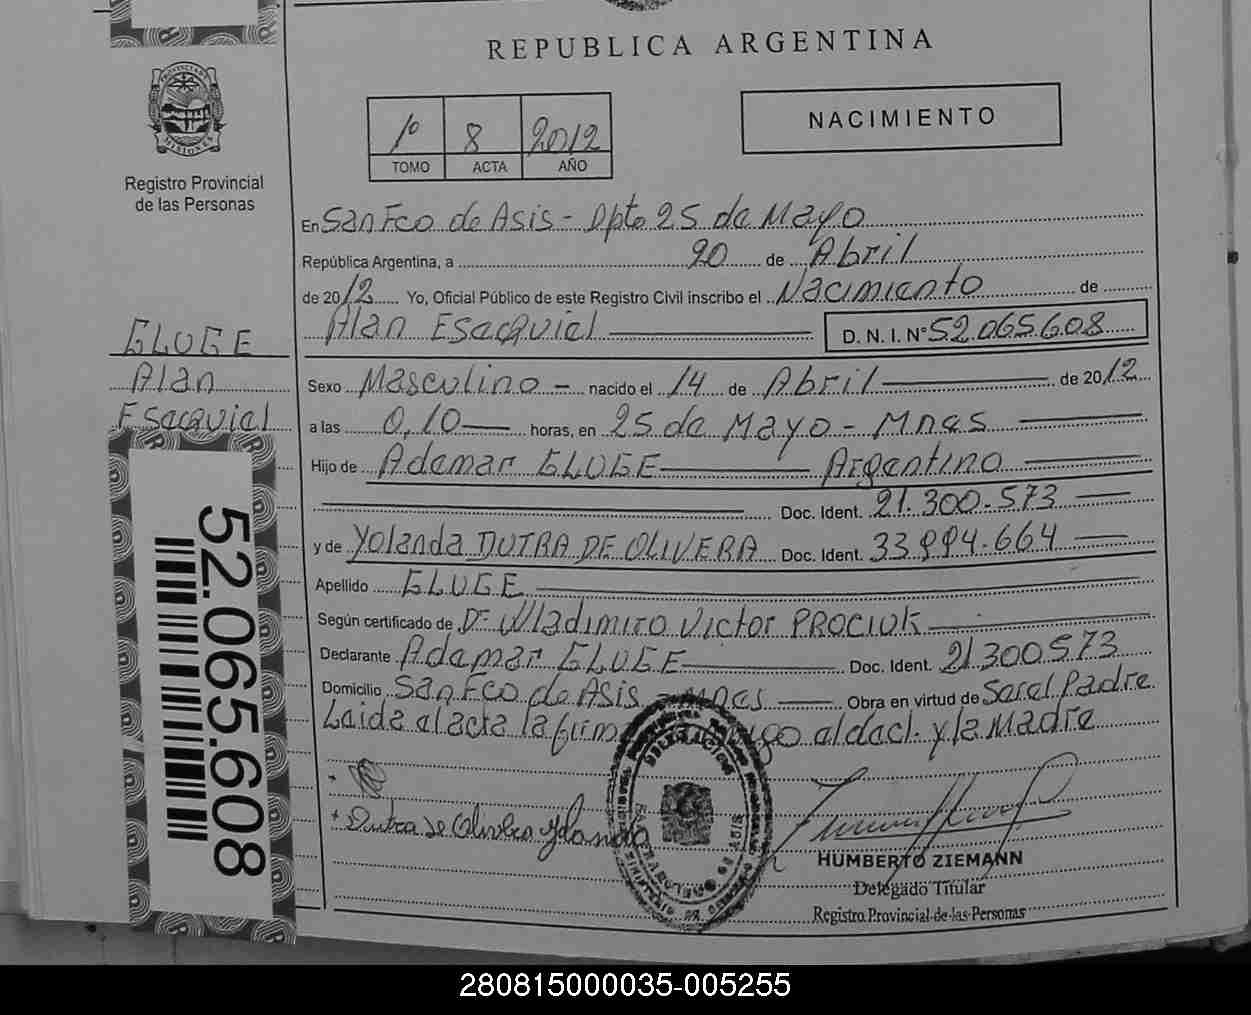 REPUBLICA ARGENTINA
1º 8 2012
TOMO ACTA AÑO
NACIMIENTO
PROVINCIA DE MISIONES
Registro Provincial
de las Personas
En San Fco de Asis - Dpto 25 de Mayo
República Argentina, a 20 de Abril
de 2012 Yo, Oficial Público de este Registro Civil inscribo el Nacimiento de
Alan Esequiel D.N.I. Nº 52.065.608
GLUGE
Alan
Esequiel
Sexo Masculino - nacido el 14 de Abril de 2012
a las 0,10 horas, en 25 de Mayo - Mnes
Hijo de Ademar GLUGE Argentino
Doc. Ident. 21.300.573
y de Yolanda DUTRA DE OLIVERA Doc. Ident. 33.994.664
Apellido GLUGE
Según certificado de Dr Wladimiro Victor PROCIUK
Declarante Ademar GLUGE Doc. Ident. 21300573
Domicilio San Fco de Asis - Mnes Obra en virtud de Ser el Padre
Leida el acta la firm al decl. y la Madre
Dutra de Olivera Yolanda
HUMBERTO ZIEMANN
Delegado Titular
Registro Provincial de las Personas
52.065.608
280815000035-005255